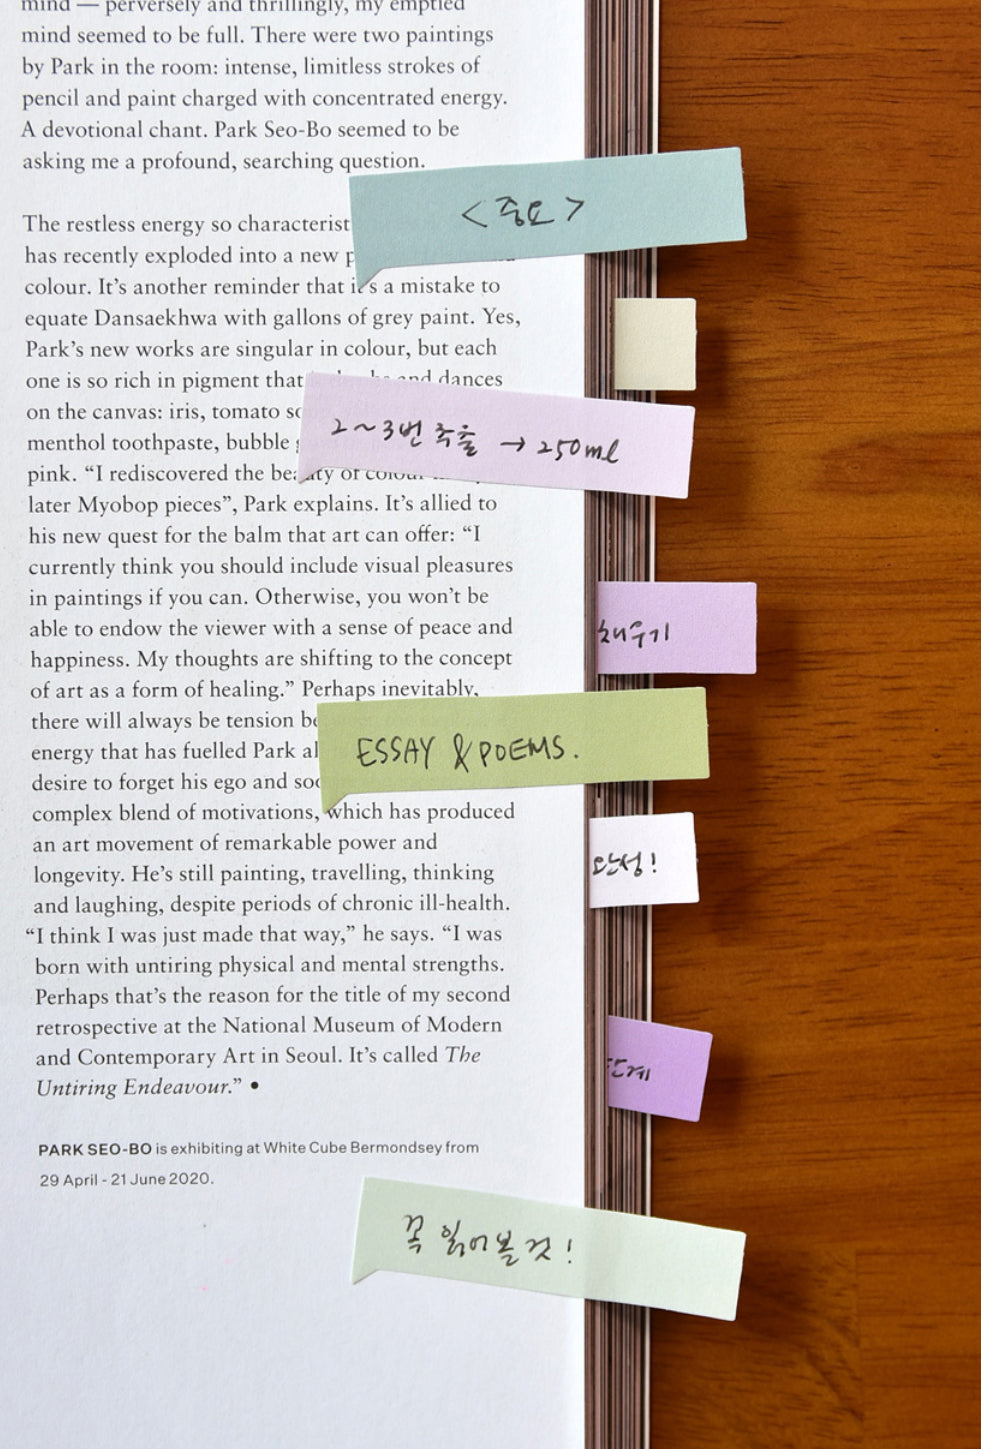 mind — perversely and thrillingly, my emptied
mind seemed to be full. There were two paintings
by Park in the room: intense, limitless strokes of
pencil and paint charged with concentrated energy.
A devotional chant. Park Seo-Bo seemed to be
asking me a profound, searching question.
<중요>
The restless energy so characterist
has recently exploded into a new p
colour. It’s another reminder that it’s a mistake to
equate Dansaekhwa with gallons of grey paint. Yes,
Park’s new works are singular in colour, but each
one is so rich in pigment that and dances
on the canvas: iris, tomato so
2~3번 추출 → 250ml
menthol toothpaste, bubble
pink. “I rediscovered the beauty of colour
later Myobop pieces”, Park explains. It’s allied to
his new quest for the balm that art can offer: “I
currently think you should include visual pleasures
in paintings if you can. Otherwise, you won’t be
able to endow the viewer with a sense of peace and
채우기
happiness. My thoughts are shifting to the concept
of art as a form of healing.” Perhaps inevitably,
there will always be tension be
energy that has fuelled Park al
ESSAY & POEMS.
desire to forget his ego and soo
complex blend of motivations, which has produced
an art movement of remarkable power and
longevity. He’s still painting, travelling, thinking
완성!
and laughing, despite periods of chronic ill-health.
“I think I was just made that way,” he says. “I was
born with untiring physical and mental strengths.
Perhaps that’s the reason for the title of my second
retrospective at the National Museum of Modern
and Contemporary Art in Seoul. It’s called The
Untiring Endeavour.” •
PARK SEO-BO is exhibiting at White Cube Bermondsey from
29 April - 21 June 2020.
꼭 읽어볼 것!